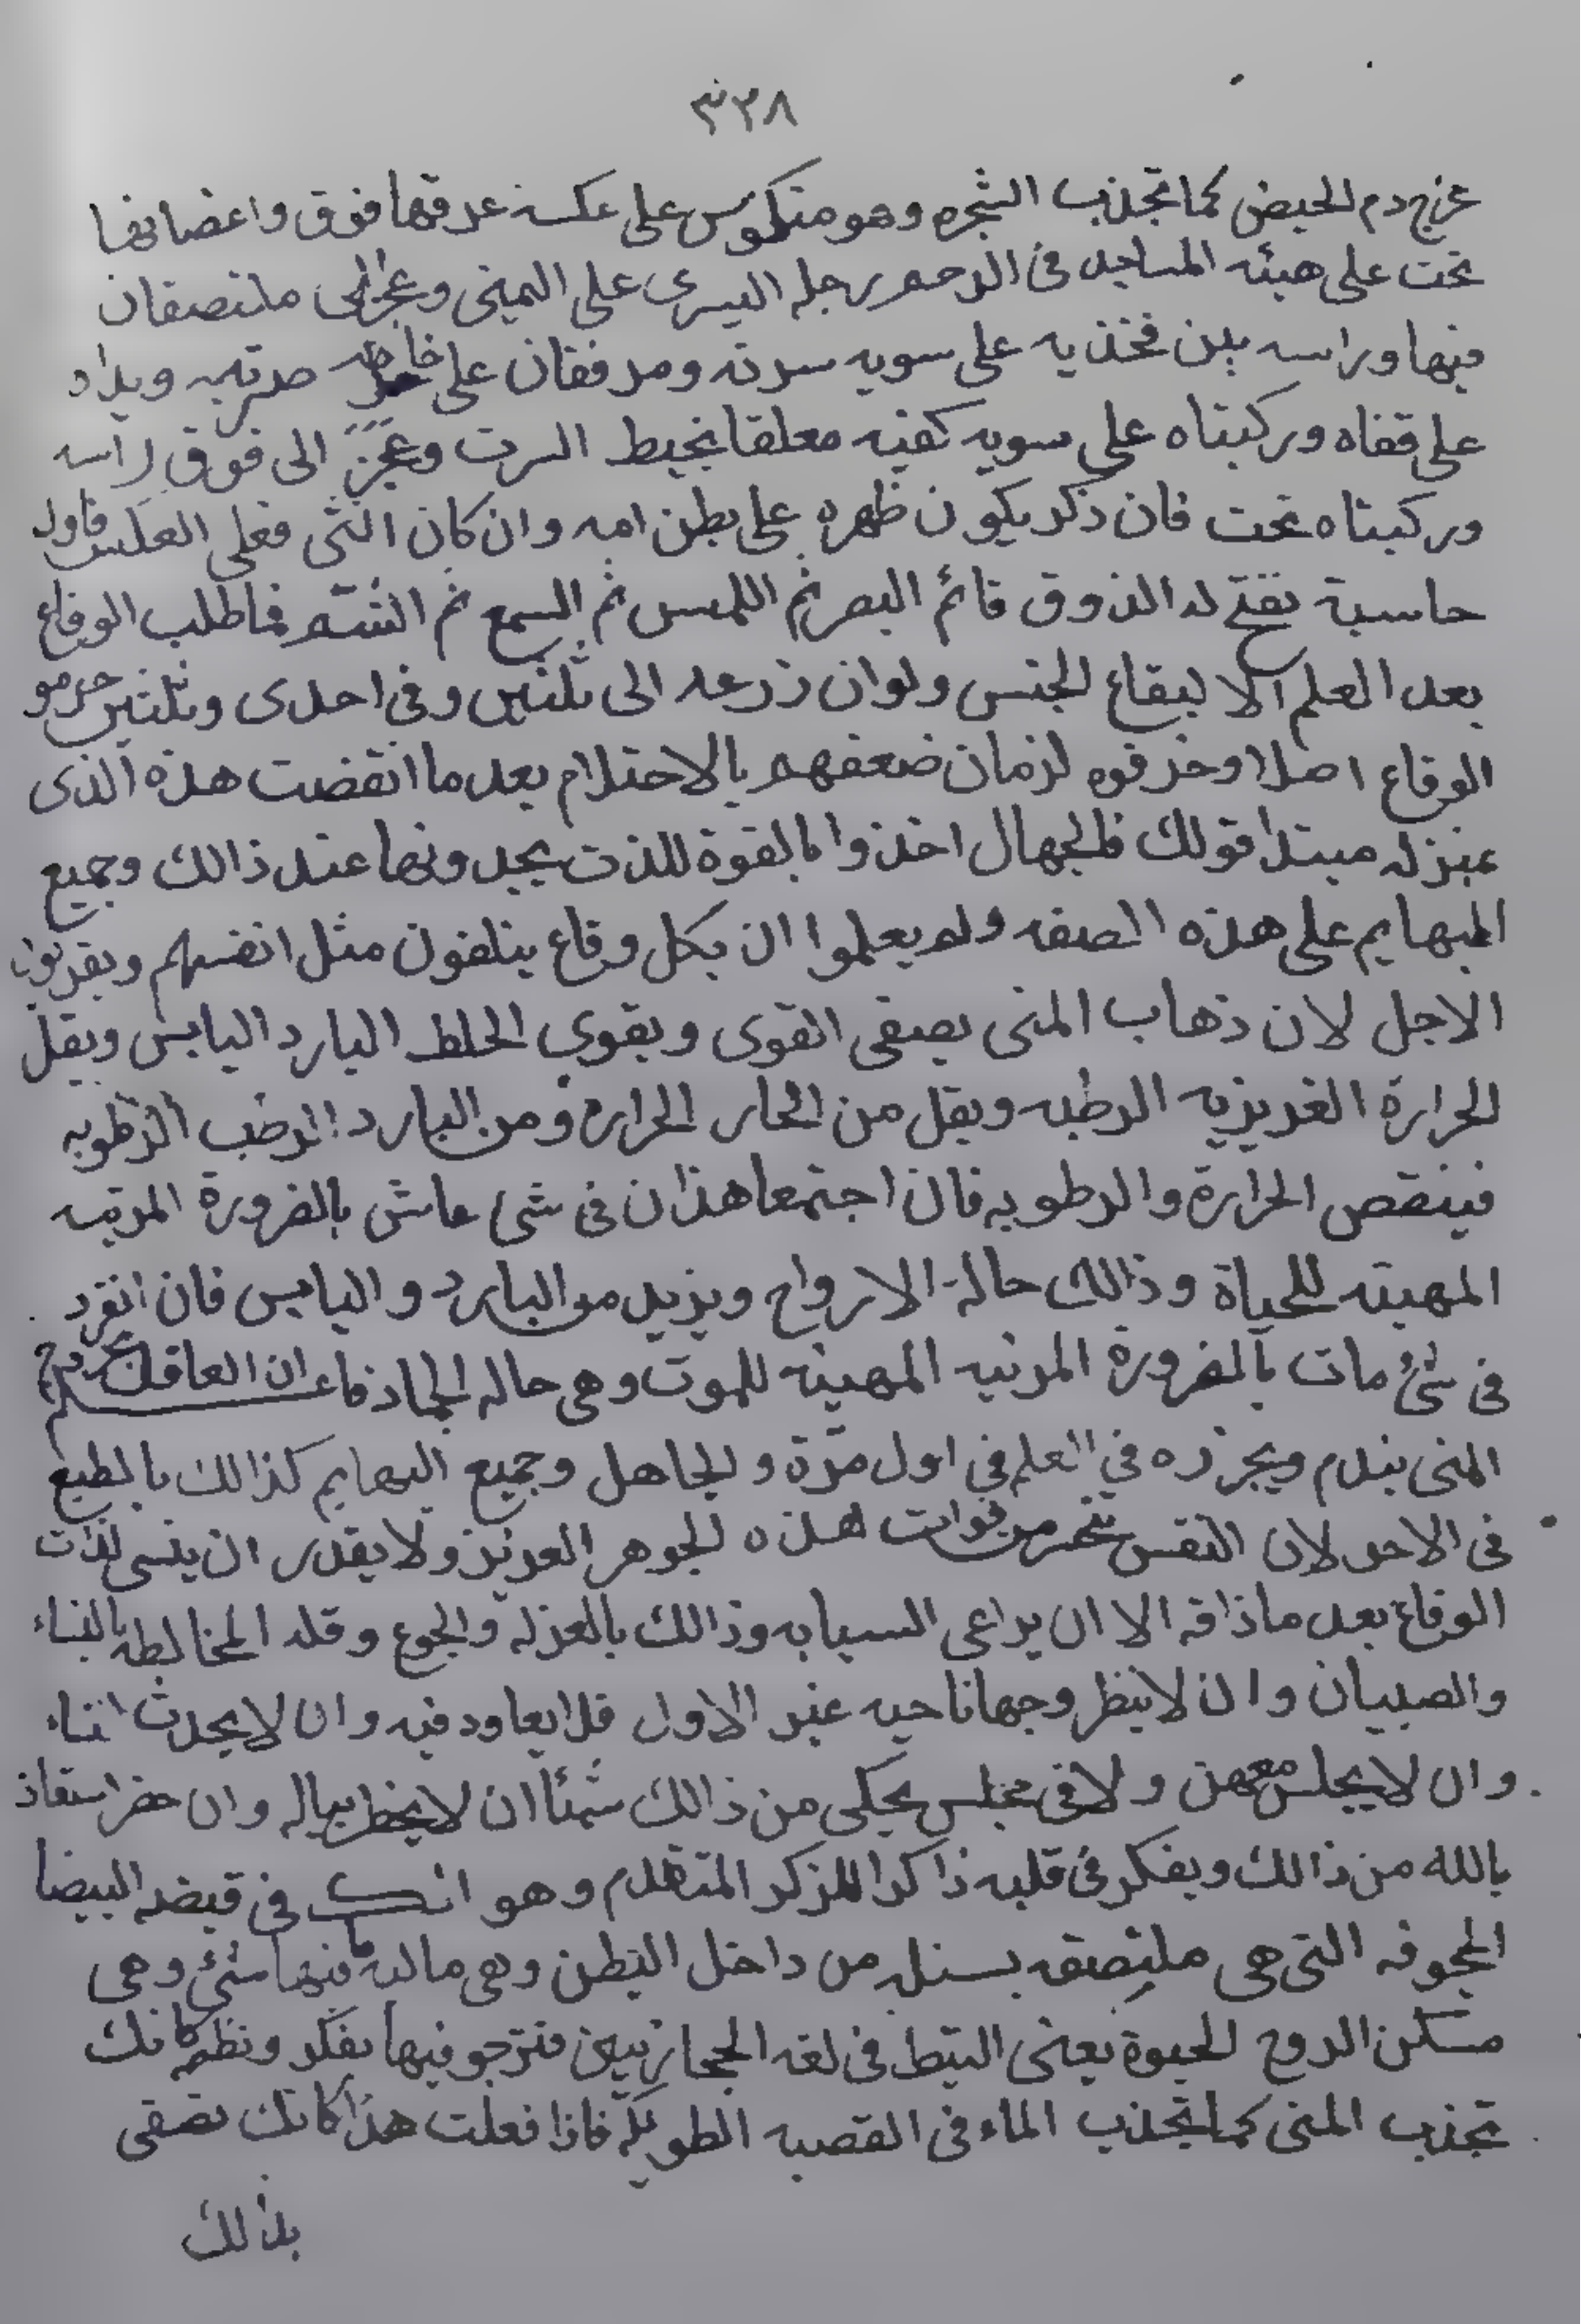 ٣٢٨
دم الحيض كما تجذب الشجره وهو منكوس على عكسه عرقها فوق واعضانها
تحت على هيئه الساجد فى الرحم رجله اليسرى على اليمنى و ملتصقان
فيها وراسه بين فخذيه على سويه سرته ومرفقان على صرتيه ويداه
على قفاه وركبتاه على سويه كفيه معلقا بخيط السرت وعجزه الى فوق راسه
وركبتاه تحت فان ذكر يكون ظهره على بطن امه وان كان انثى فعلى العكس فاول
حاسية تفتح له الذوق قائم البصر ثم اللمس ثم السمع ثم الشم فما طلب الوقاع
بعد العلم الا لبقاع الجنس ولوان زرعه الى ثلثين وفى احدى وثلثين حرمو
الوقاع اصلا وخرقوه لزمان ضعفهم بالاحتلام بعد ما انقضت هذه الذى
بمنزله مبتدا قولك فالجهال اخذوا بالقوة للذت يجدونها عند ذالك وجميع
البهايم على هذه الصفه ولم يعلموا ان بكل وقاع يتلفون مثل انفسهم ويقربون
الاجل لان ذهاب المنى يصفى القوى ويقوي الخلط البارد اليابس ويقل
الحرارة الغريزيه الرطبه ويقل من الحار الحراره ومن البارد الرطب الرطوبه
فينقص الحرارة والرطوبه فان اجتمعا هذان فى شى عاش بالضرورة المرتبه
المهيته للحياة وذالك حالة الارواح ويزيد من البارد واليابس فان انفرد
فى شئ مات بالضرورة المرتبه المهيته للموت وهى حاله الجماد فاعلم ان العاقل يخرج
المنى يندم ويجزره فى العلم فى اول مرة والجاهل وجميع البهايم كذالك بالطبع
فى الاحد لان النفس من فوات هذه الجوهر العزيز ولا يقدر ان ينسى لذت
الوقاع بعد ماذاقه الا ان يراعى اسبابه وذالك بالعزله والجوع وقله المخالطه بالنساء
والصبيان وان لا ينظر وجها ناحيه غير الاول فلا يعاود فيه وان لا يحدث نساء
وان لا يجلس معهن ولا فى مجلس يحكى من ذالك شئا ان لا يخطر بباله وان حضر استعاذ
بالله من ذالك ويفكر فى قلبه ذاكرا للذكر المتقدم وهو انك فى قبضه البيضا
المجوفه التى هى ملتصقه من داخل البطن وهى ماله فيها شئ وهى
مسكن الروح الحيوة يعنى البيط فى لغه الحجازيين فترجو فيها بفكر ونظم كانك
تجذب المنى كما تجذب الماء فى القصبه الطويله فاذا فعلت هذا كانك تصفى
بذالك